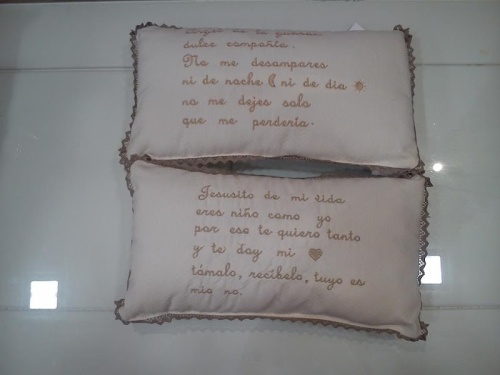 dulce compañia.
No me desampares
ni de noche ni de dia
no me dejes solo
que me perderia.
Jesusito de mi vida
eres niño como yo
por eso te quiero tanto
y te doy mi
tómalo, recíbelo, tuyo es
mio no.